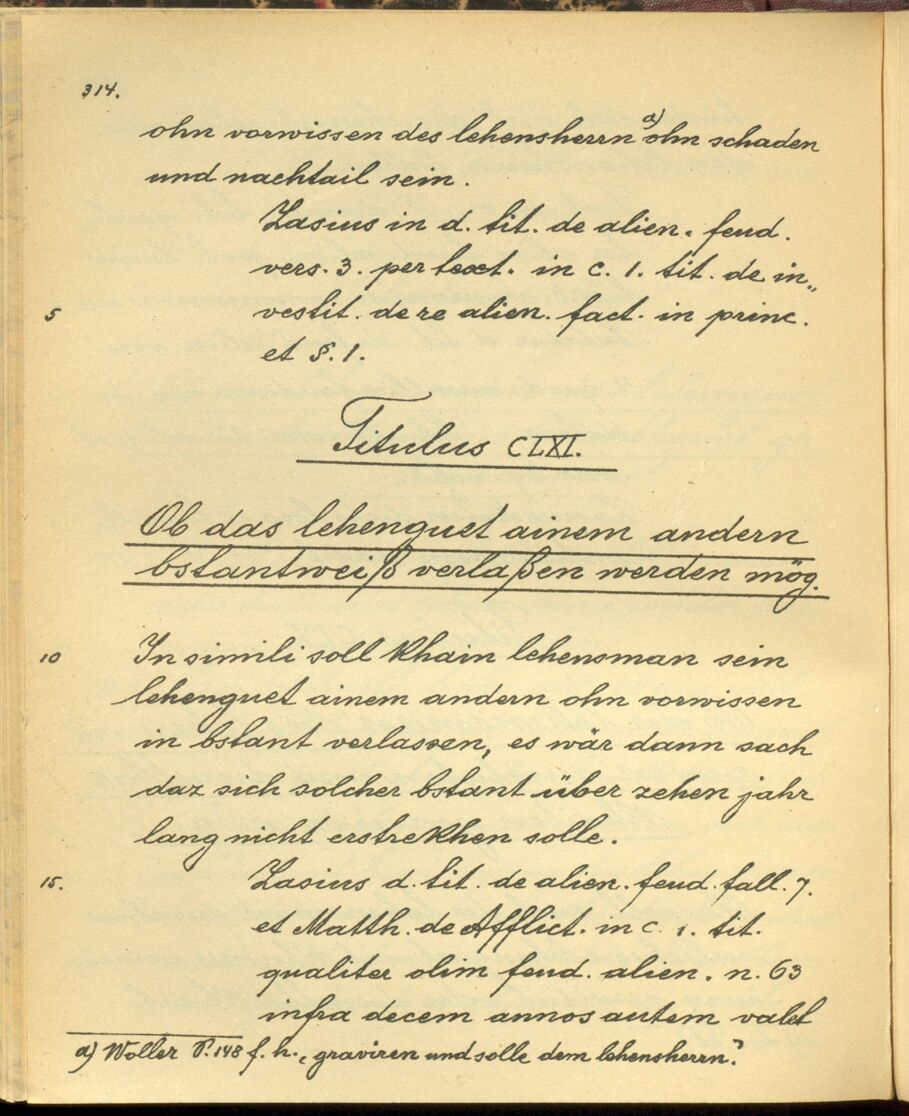 314.
ohn vorwissen des lehensherrn a) ohn schaden
und nachtail sein.
Zasius in d. tit. de alien. feud.
vers. 3. per text. in c. 1. tit. de in„
5 vestit. de re alien. fact. in princ.
et §. 1.
Titulus CLXI.
Ob das lehenguet ainem andern
bstantweiß verlaßen werden mög.
10 In simili soll khain lehensman sein
lehenguet ainem andern ohn vorwissen
in bstant verlassen, es wär dann sach
daz sich solcher bstant über zehen jahr
lang nicht erstrekhen solle.
15. Zasius d. tit. de alien. feud. fall. 7.
et Matth. de Afflict. in c. 1. tit.
qualiter olim feud. alien. n. 63
infra decem annos autem valet
a) Woller P. 148 f. h. „graviren und solle dem lehensherrn"